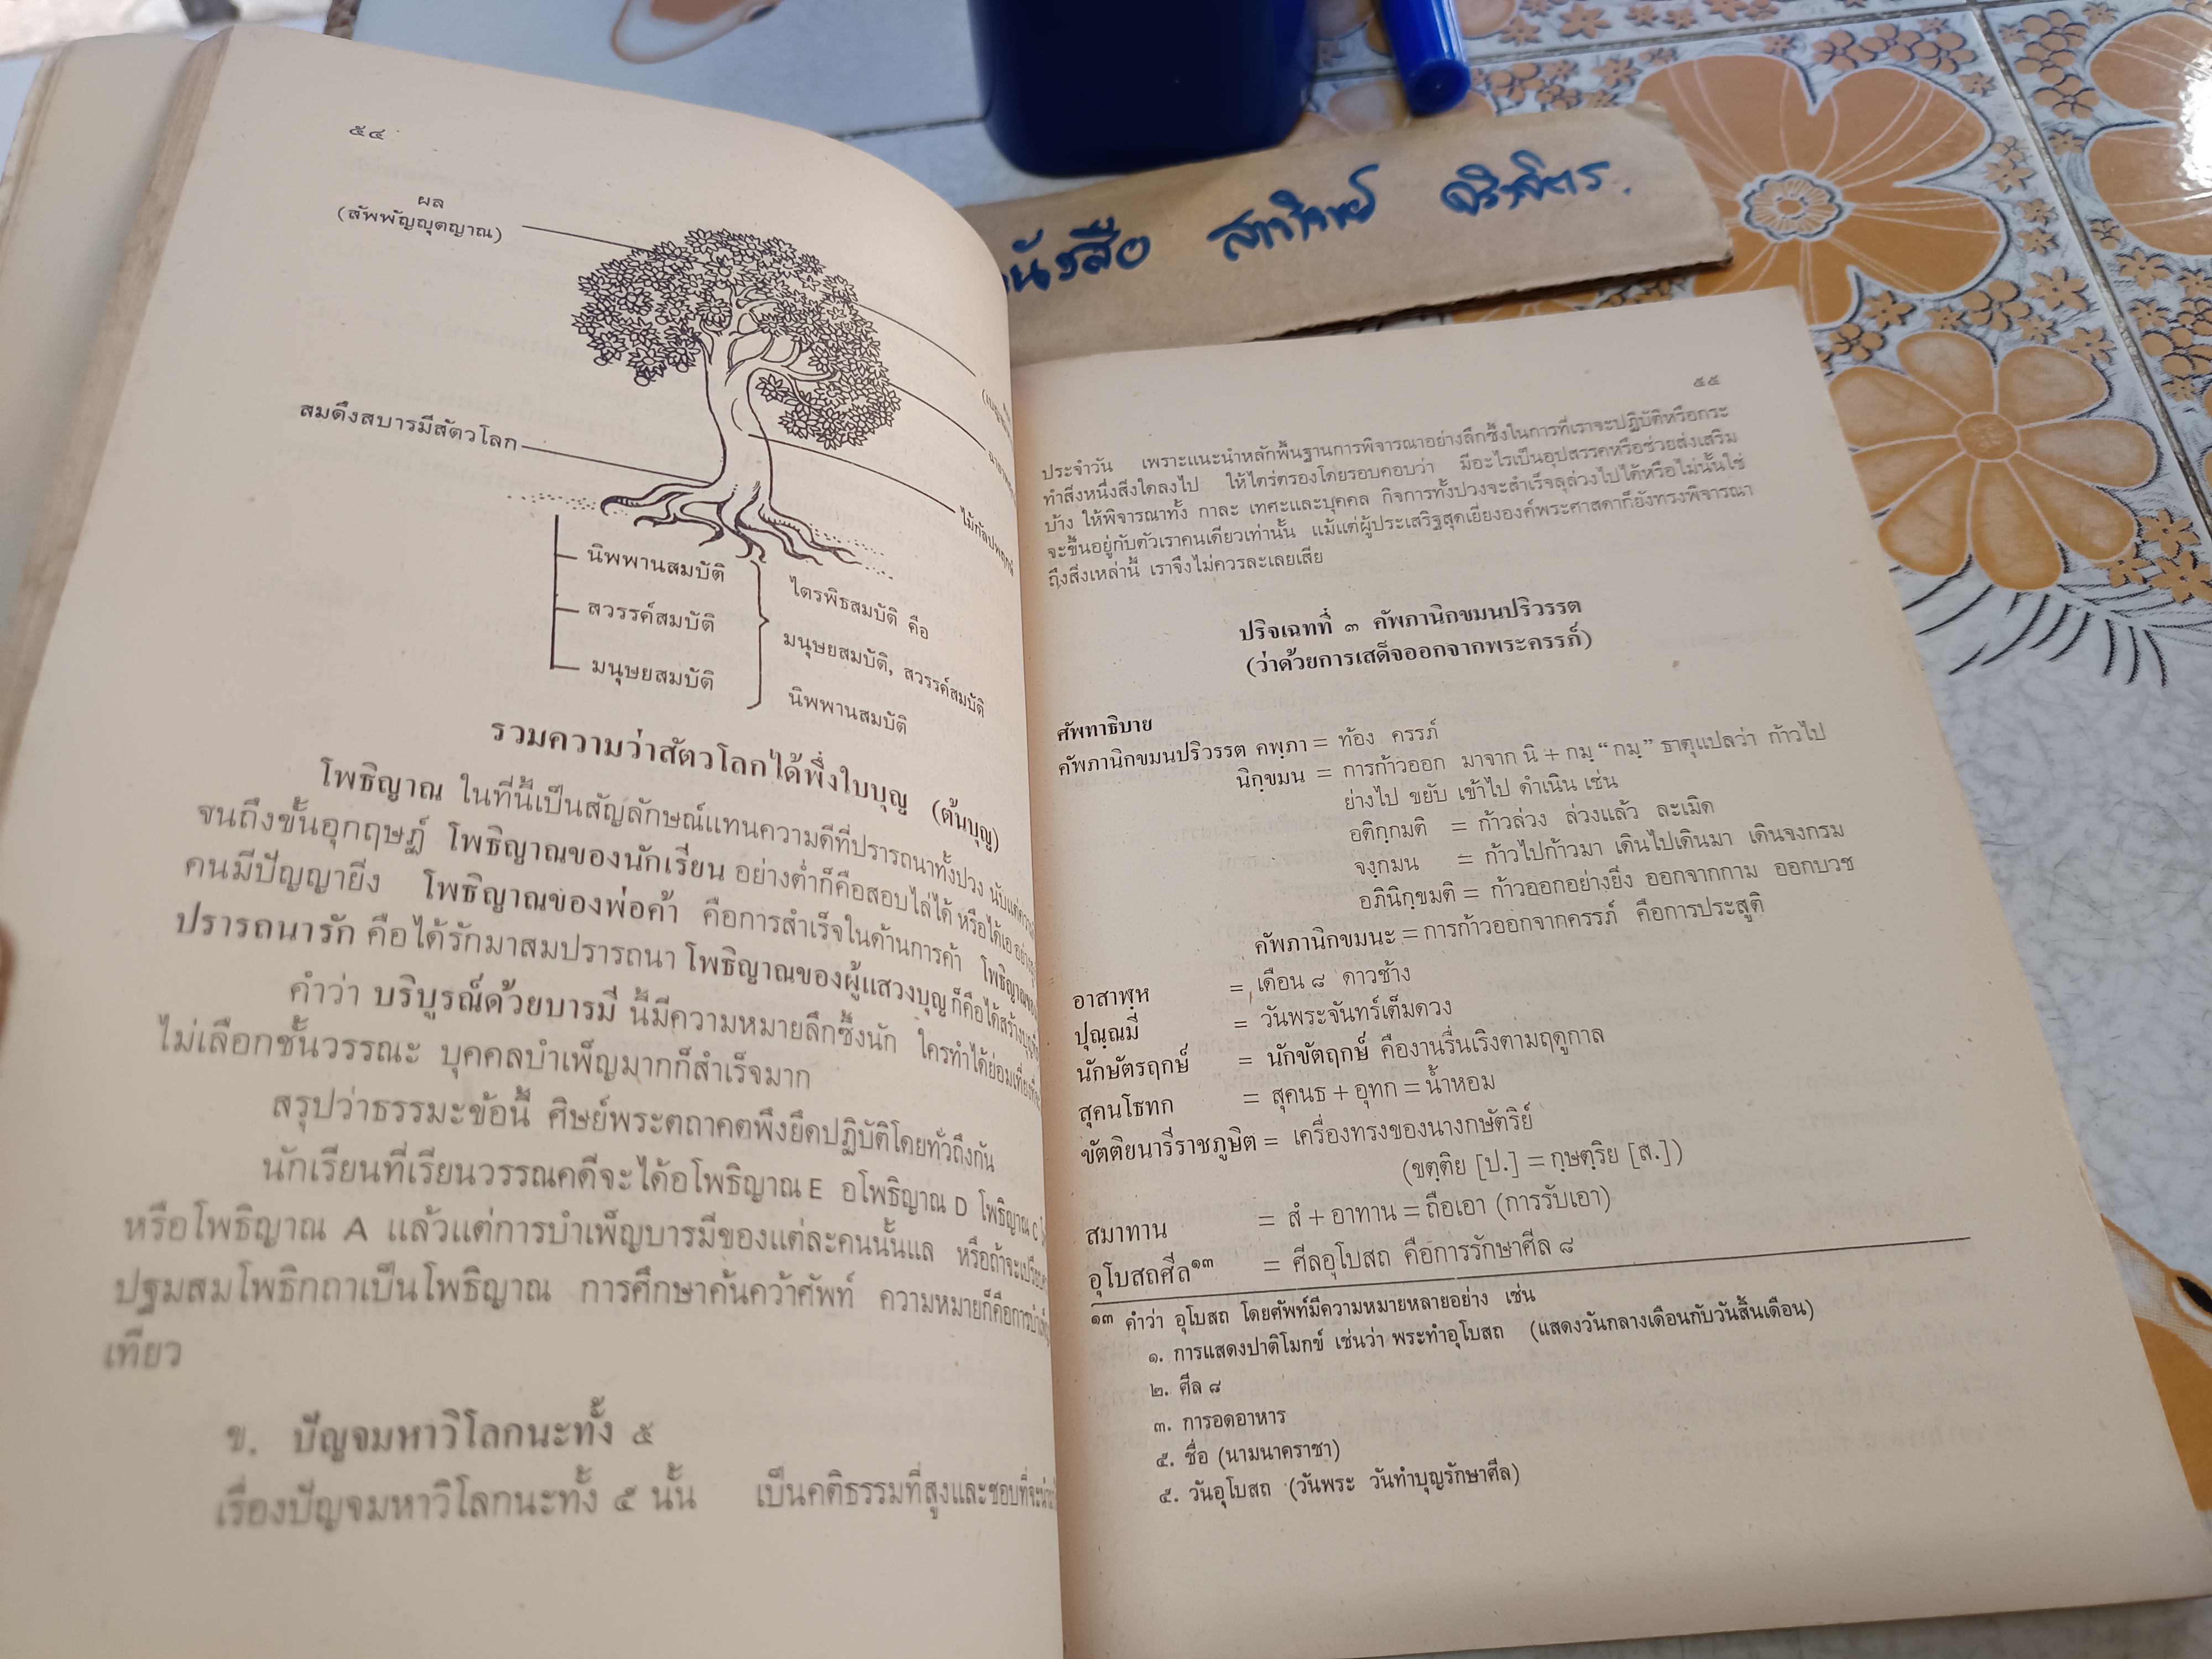 ๕๔
ผล
(สัพพัญญุตญาณ)
สมดึงสบารมีสัตวโลก
ไม้กัลปพฤกษ์
นิพพานสมบัติ
สวรรค์สมบัติ
มนุษยสมบัติ
ไตรพิธสมบัติ คือ
มนุษยสมบัติ, สวรรค์สมบัติ
นิพพานสมบัติ
รวมความว่าสัตวโลกได้พึ่งใบบุญ (ต้นบุญ)
โพธิญาณ ในที่นี้เป็นสัญลักษณ์แทนความดีที่ปรารถนาทั้งปวง นับแต่
จนถึงขั้นอุกฤษฏ์ โพธิญาณของนักเรียน อย่างต่ำก็คือสอบไล่ได้ หรือได้เอ
คนมีปัญญายิ่ง โพธิญาณของพ่อค้า คือการสำเร็จในด้านการค้า
ปรารถนารัก คือได้รักมาสมปรารถนา โพธิญาณของผู้แสวงบุญ ก็คือได้สร้าง
คำว่า บริบูรณ์ด้วยบารมี นี้มีความหมายลึกซึ้งนัก ใครทำได้ย่อม
ไม่เลือกชั้นวรรณะ บุคคลบำเพ็ญมากก็สำเร็จมาก
สรุปว่าธรรมะข้อนี้ ศิษย์พระตถาคตพึงยึดปฏิบัติโดยทั่วถึงกัน
นักเรียนที่เรียนวรรณคดีจะได้อโพธิญาณ E อโพธิญาณ D โพธิญาณ C
หรือโพธิญาณ A แล้วแต่การบำเพ็ญบารมีของแต่ละคนนั้นแล หรือถ้าจะ
ปฐมสมโพธิกถาเป็นโพธิญาณ การศึกษาค้นคว้าศัพท์ ความหมายก็คือการ
เทียว
ข. ปัญจมหาวิโลกนะทั้ง ๕
เรื่องปัญจมหาวิโลกนะทั้ง ๕ นั้น เป็นคติธรรมที่สูงและชอบที่จะ
หนังสือ
๕๕
ประจำวัน เพราะแนะนำหลักพื้นฐานการพิจารณาอย่างลึกซึ้งในการที่เราจะปฏิบัติหรือกระ
ทำสิ่งหนึ่งสิ่งใดลงไป ให้ไตร่ตรองโดยรอบคอบว่า มีอะไรเป็นอุปสรรคหรือช่วยส่งเสริม
บ้าง ให้พิจารณาทั้ง กาละ เทศะและบุคคล กิจการทั้งปวงจะสำเร็จลุล่วงไปได้หรือไม่นั้นใช่
จะขึ้นอยู่กับตัวเราคนเดียวเท่านั้น แม้แต่ผู้ประเสริฐสุดเยี่ยงองค์พระศาสดาก็ยังทรงพิจารณา
ถึงสิ่งเหล่านี้ เราจึงไม่ควรละเลยเสีย
ปริจเฉทที่ ๓ คัพภานิกขมนปริวรรต
(ว่าด้วยการเสด็จออกจากพระครรภ์)
ศัพทาธิบาย
คัพภานิกขมนปริวรรต คพฺภา = ท้อง ครรภ์
นิกฺขมน = การก้าวออก มาจาก นิ + กมฺ “กมฺ” ธาตุแปลว่า ก้าวไป
ย่างไป ขยับ เข้าไป ดำเนิน เช่น
อติกฺกมติ = ก้าวล่วง ล่วงแล้ว ละเมิด
จงฺกมน = ก้าวไปก้าวมา เดินไปเดินมา เดินจงกรม
อภินิกฺขมติ = ก้าวออกอย่างยิ่ง ออกจากกาม ออกบวช
คัพภานิกขมนะ = การก้าวออกจากครรภ์ คือการประสูติ
อาสาฬฺห = เดือน ๘ ดาวช้าง
ปุณฺณมี = วันพระจันทร์เต็มดวง
นักษัตรฤกษ์ = นักขัตฤกษ์ คืองานรื่นเริงตามฤดูกาล
สุคนโธทก = สุคนธ + อุทก = น้ำหอม
ขัตติยนารีราชภูษิต = เครื่องทรงของนางกษัตริย์
(ขตฺติย [ป.] = กฺษตฺริย [ส.])
สมาทาน = สํ + อาทาน = ถือเอา (การรับเอา)
อุโบสถศีล๑๓ = ศีลอุโบสถ คือการรักษาศีล ๘
๑๓ คำว่า อุโบสถ โดยศัพท์มีความหมายหลายอย่าง เช่น
๑. การแสดงปาติโมกข์ เช่นว่า พระทำอุโบสถ (แสดงวันกลางเดือนกับวันสิ้นเดือน)
๒. ศีล ๘
๓. การอดอาหาร
๕. ชื่อ (นามนาคราชา)
๕. วันอุโบสถ (วันพระ วันทำบุญรักษาศีล)